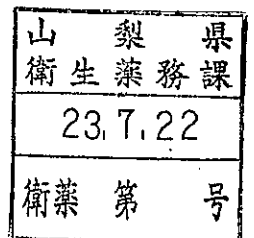 山梨県
衛生薬務課
23.7.22
衛薬第 号